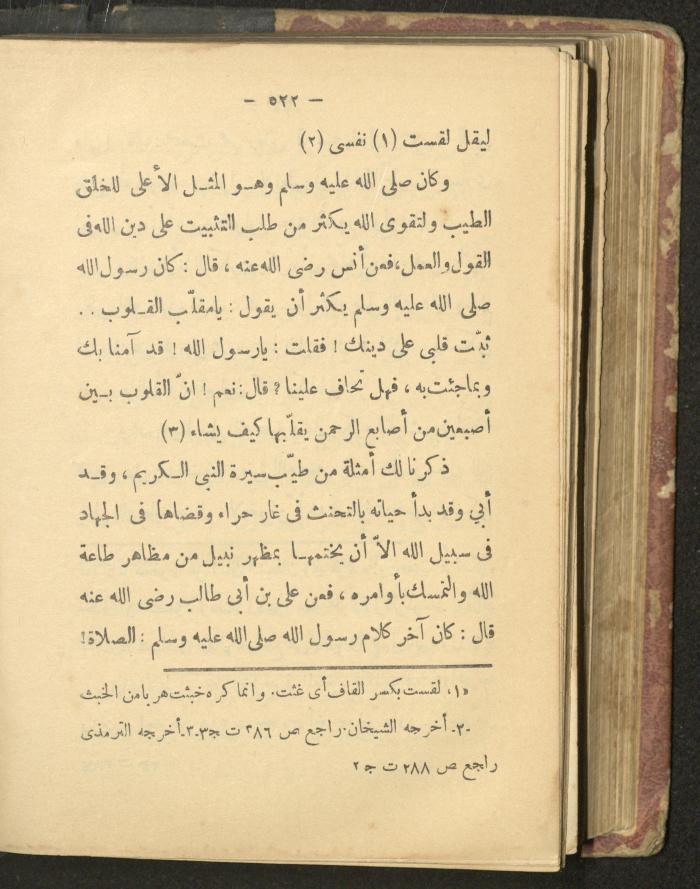 — ٥٢٢ —
ليقل لقست (١) نفسى (٢)
وكان صلى الله عليه وسلم وهو المثل الأعلى للخلق
الطيب ولتقوى الله يكثر من طلب التثبيت على دين الله فى
القول والعمل، فعن أنس رضى الله عنه ، قال : كان رسول الله
صلى الله عليه وسلم يكثر أن يقول : يا مقلّب القلوب . .
ثبّت قلبى على دينك ! فقلت : يارسول الله ! قد آمنا بك
وبما جئت به ، فهل تخاف علينا ؟ قال : نعم ! انّ القلوب بين
أصبعين من أصابع الرحمن يقلّبها كيف يشاء (٣)
ذكرنا لك أمثلة من طيّب سيرة النبى الكريم ، وقد
أبي وقد بدأ حياته بالتحنث فى غار حراء وقضاها فى الجهاد
فى سبيل الله الاّ أن يختمها بمظهر نبيل من مظاهر طاعة
الله والتمسك بأوامره ، فعن على بن أبى طالب رضى الله عنه
قال : كان آخر كلام رسول الله صلى الله عليه وسلم : الصلاة !
«١، لقست بكسر القاف أى غثت. وانما كره خبثت هربا من الخبث
-٢- أخرجه الشيخان. راجع ص ٢٨٦ ت ج٣ـ٣ـ أخرجه الترمذى
راجع ص ٢٨٨ ت ج ٢